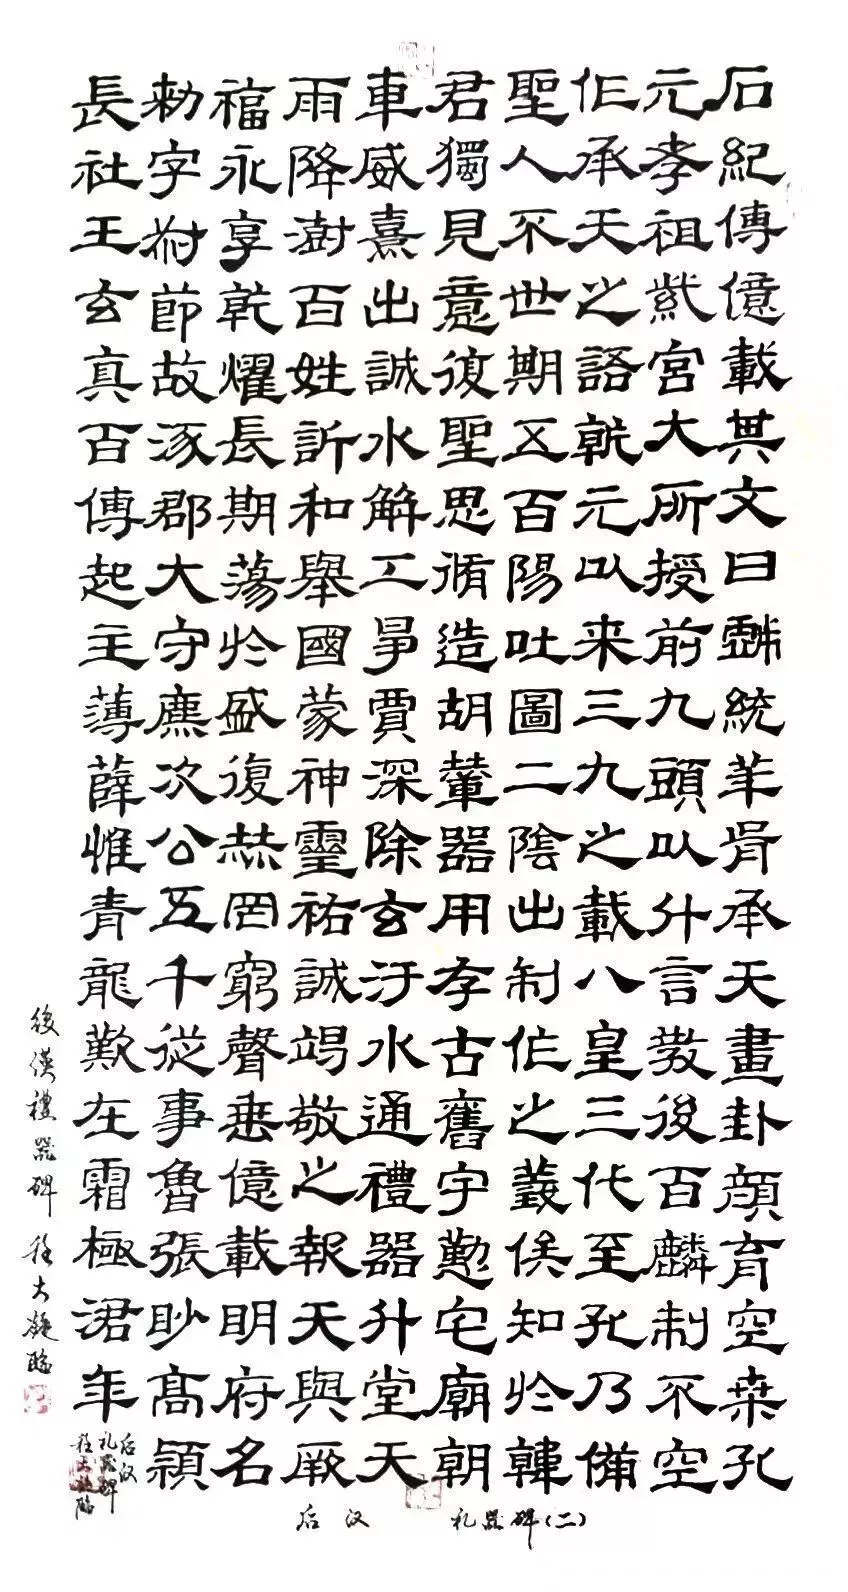 石紀傳億載其文曰戲統華胥承天畫卦顏育空桑孔
元孝祖紫宮大所授前九頭以什言教後百麟制不空
作承天之語乾元以来三九之載八皇三代至孔乃備
聖人不世期五百陽吐圖二陰出制作之義俟知於韓
君獨見意復聖思脩造胡輦器用存古舊宇慇宅廟朝
車威熹出誠水解工爭賈深除玄汙水通禮器升堂天
雨降澍百姓訢和舉國蒙神靈祐誠竭敬之報天與厥
福永享乾燿長期蕩於盛復赫罔窮聲垂億載明府名
勑字叔節故涿郡大守麃次公五千從事魯張眇高潁
長社王玄真百傳起主薄薛惟青龍歎在霜極涒年
後漢禮器碑 程大凝臨
后汉
礼器碑
程大凝臨
后汉 礼器碑(二)